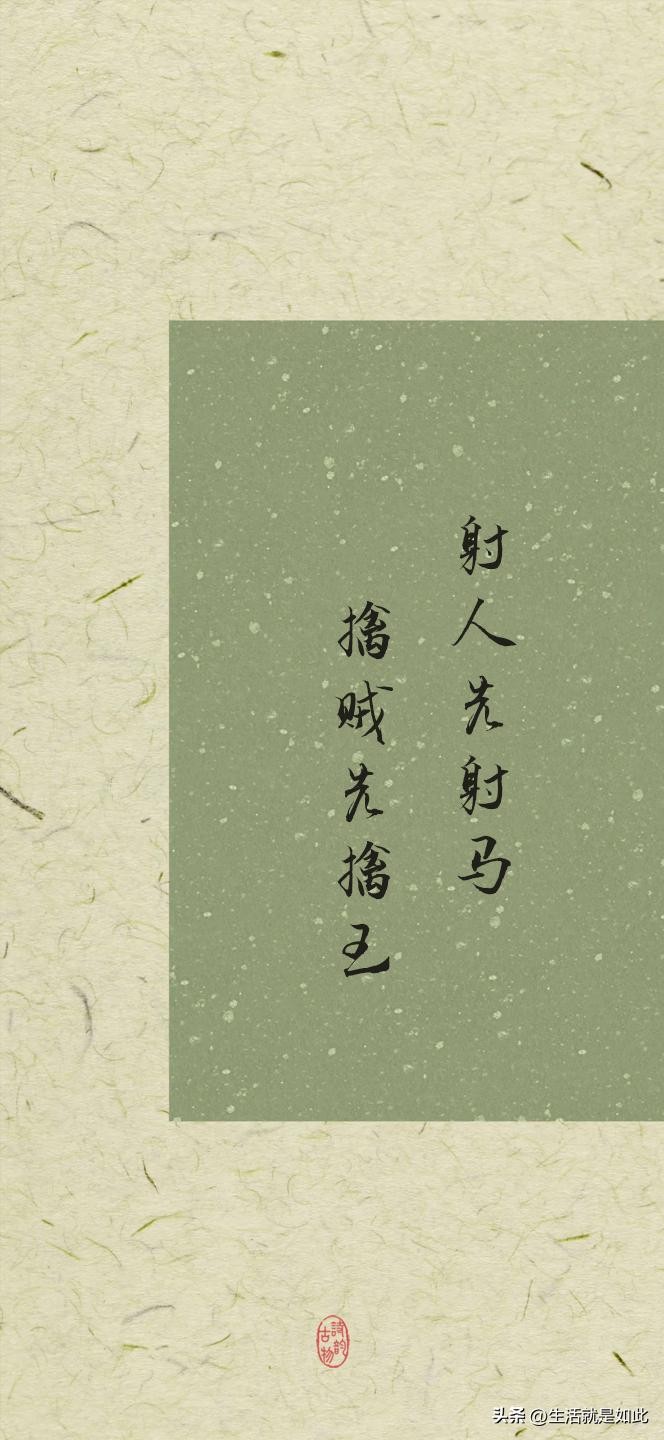 射人先射马
擒贼先擒王
詩韵
古物
头条 @生活就是如此